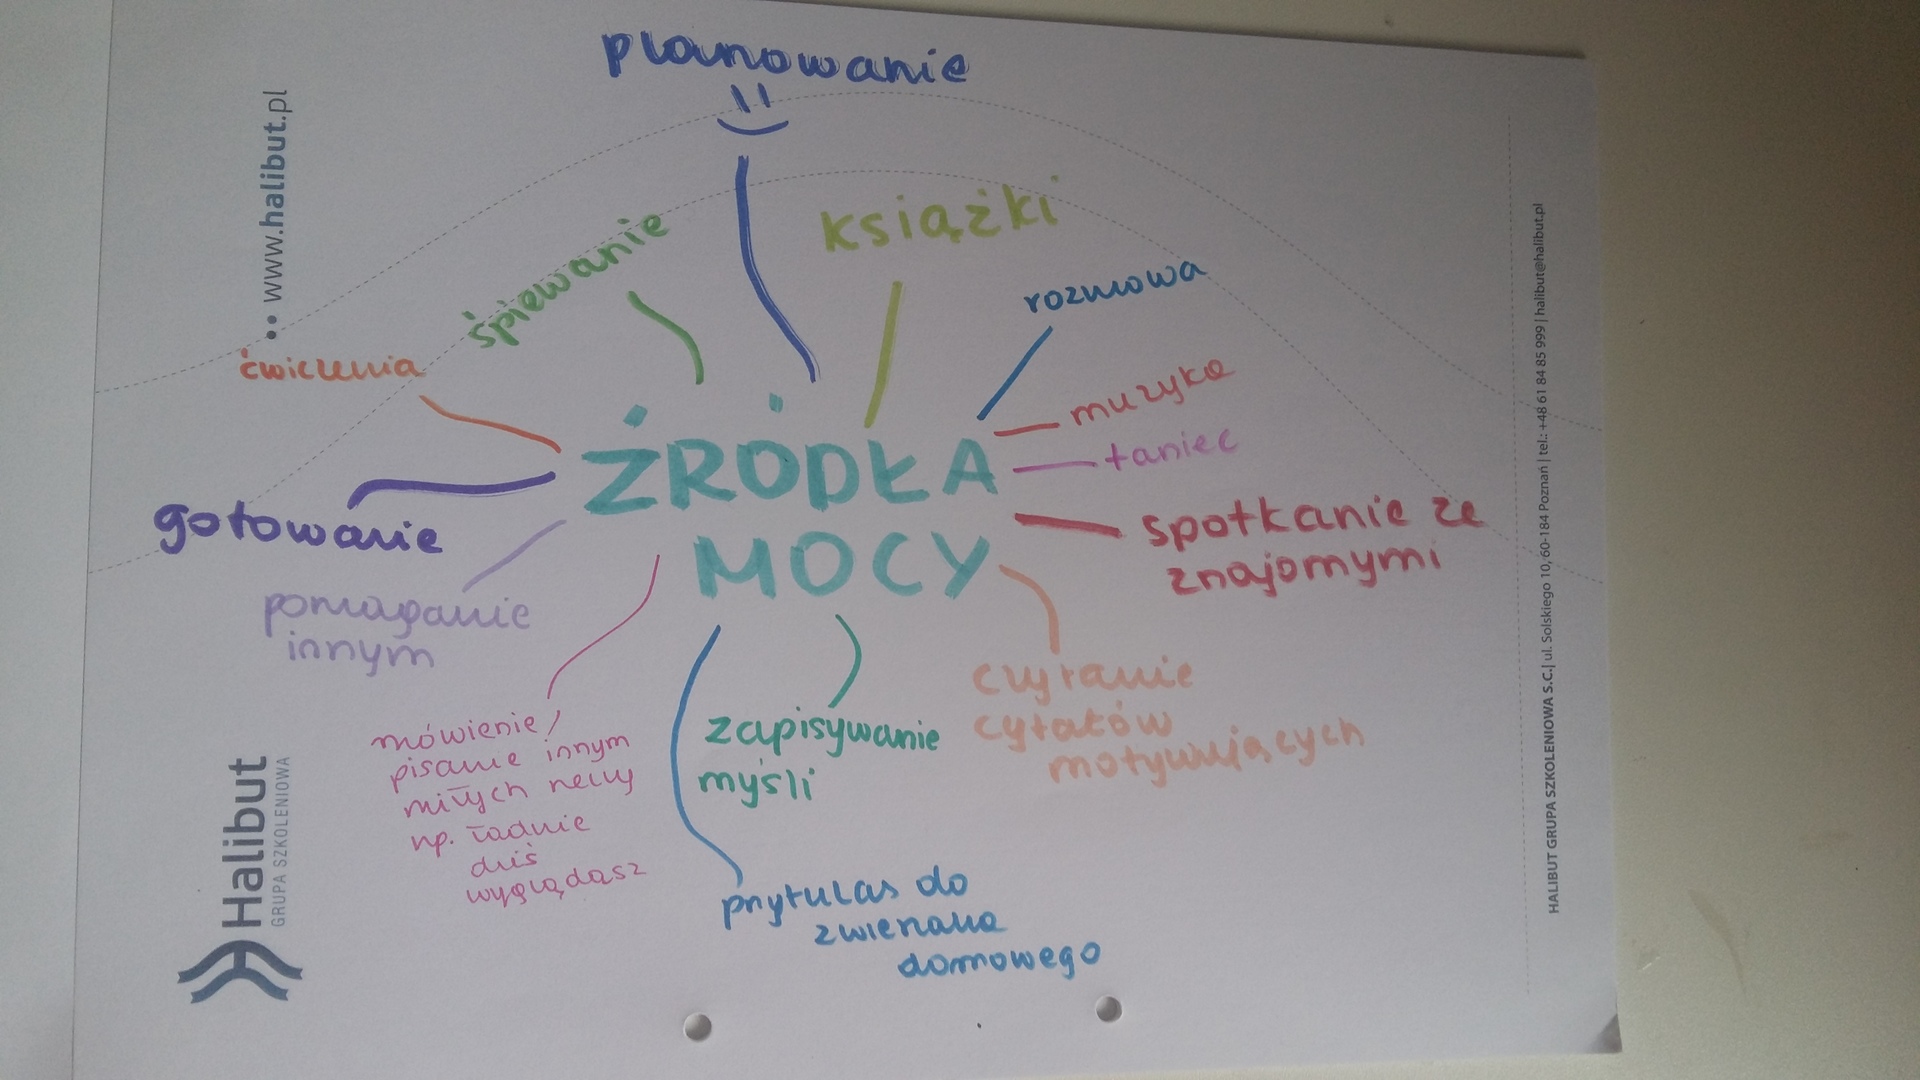 planowanie
śpiewanie
książki
rozmowa
ćwiczenia
muzyka
taniec
ŹRÓDŁA
MOCY
gotowanie
spotkanie ze
znajomymi
pomaganie
innym
mówienie/
pisanie innym
miłych rzeczy
np. ładnie
dziś
wyglądasz
zapisywanie
myśli
czytanie
cytatów
motywujących
przytulas do
zwierzaka
domowego
www.halibut.pl
Halibut
GRUPA SZKOLENIOWA
HALIBUT GRUPA SZKOLENIOWA S.C.| ul. Solskiego 10, 60-184 Poznań | tel.: +48 61 84 85 999 | halibut@halibut.pl